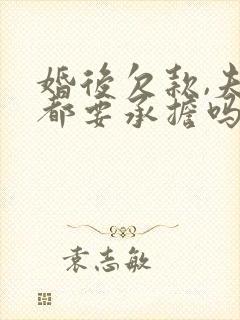 婚後欠款,夫
都要承擔嗎
袁志敏